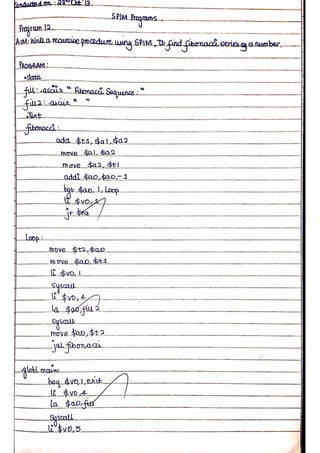 Conducted on : 22nd Oct '13.
SPIM Programs.
Program 12.
AIM: Write a recursive procedure using SPIM, To find fibonacci series of a number.
PROGRAM:
.data
fill: .asciiz " Fibonacci Sequence : "
fill2: .asciiz " "
.Text
fibonacci:
add $t1, $a1, $a2
move $a1, $a2
move $a2, $t1
addi $a0, $a0, -1
bgt $a0, 1, loop
li $v0,
jr $ra
loop:
move $t2, $a0
move $a0, $t1
li $v0, 1
syscall
li $v0, 4
la $a0, fill 2
syscall
move $a0, $t2
jal fibonacci
.globl main
beq $v0, 1, exit
li $v0, 4
la $a0, fill
Syscall
li $v0, 5